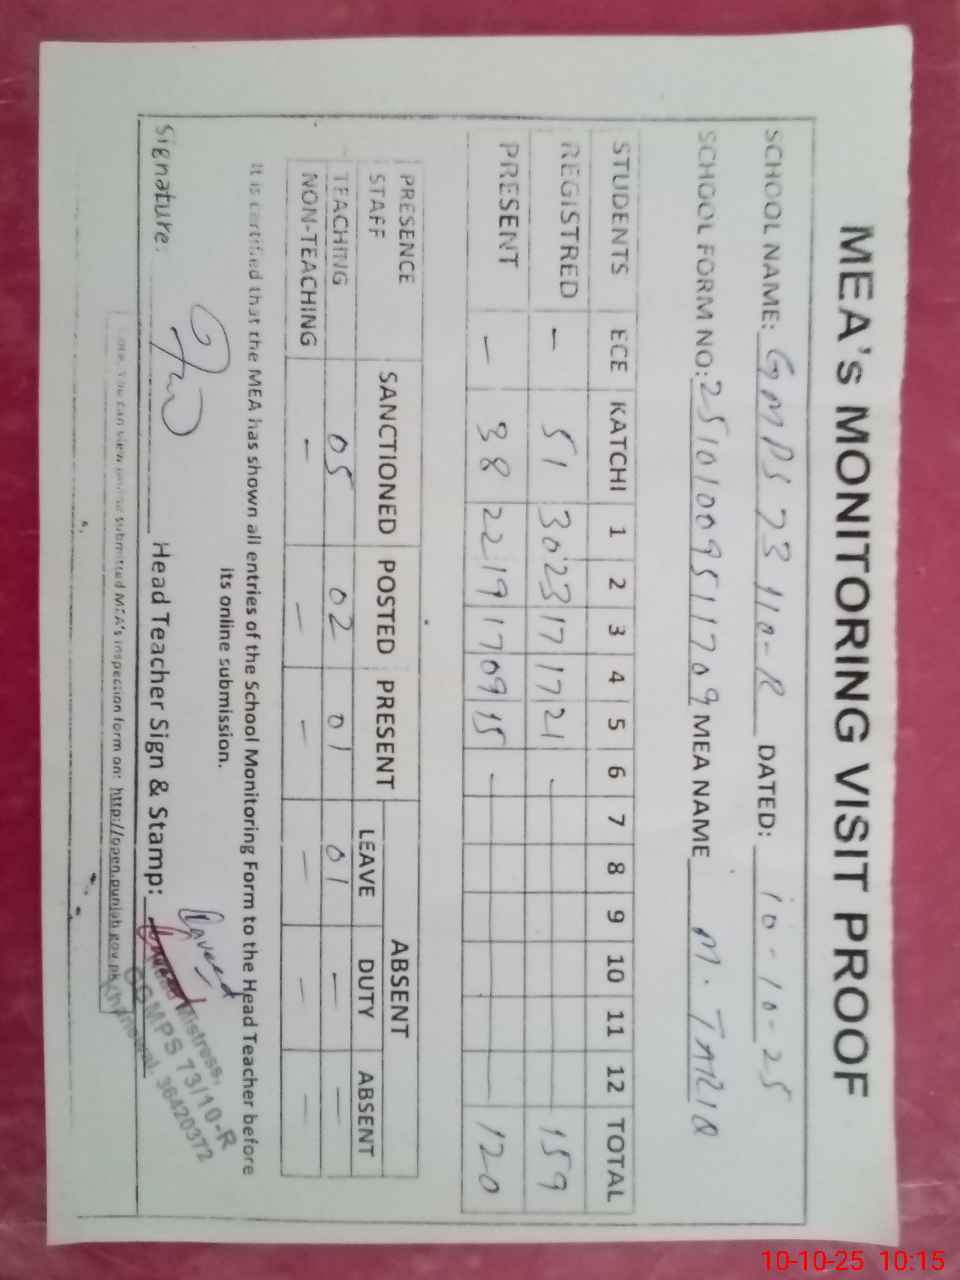 MEA's MONITORING VISIT PROOF
SCHOOL NAME: GMPS 73 110-R DATED: 10-10-25
SCHOOL FORM NO: 25101009511709 MEA NAME M. TARIQ
STUDENTS ECE KATCHI 1 2 3 4 5 6 7 8 9 10 11 12 TOTAL
REGISTRED — 51 30 23 17 17 21 — 159
PRESENT — 38 22 19 17 09 15 — 120
PRESENCE STAFF SANCTIONED POSTED PRESENT ABSENT
LEAVE DUTY ABSENT
TEACHING 05 02 01 01 — —
NON-TEACHING — — — — — —
It is certified that the MEA has shown all entries of the School Monitoring Form to the Head Teacher before
its online submission.
Signature. Head Teacher Sign & Stamp:
Mistress,
GGMPS 73/10-R
Khanewal. 36420372
You can view online submitted MEA's inspection form on: http://open.punjab.gov.pk
10-10-25 10:15